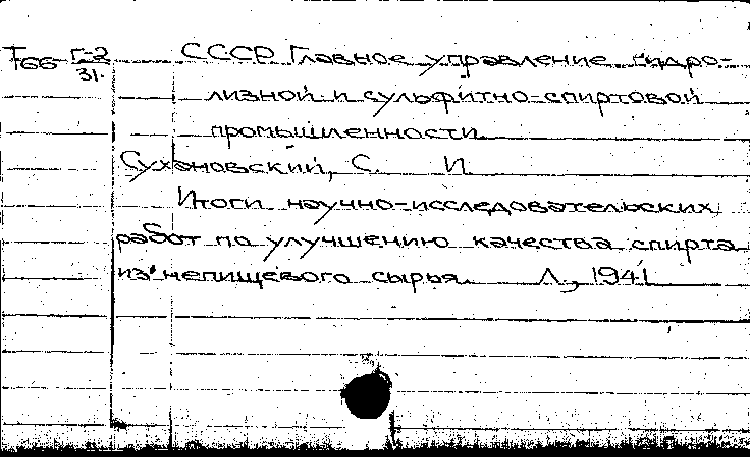 Т66 Г-2/31. СССР Главное управление гидро-
лизной и сульфитно-спиртовой
промышленности
Сухановский, С. И.
Итоги научно-исследовательских
работ по улучшению качества спирта
из непищевого сырья. Л., 1941